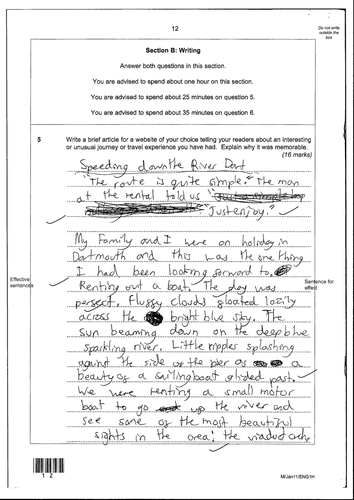 12
Do not write
outside the
box
Section B: Writing
Answer both questions in this section.
You are advised to spend about one hour on this section.
You are advised to spend about 25 minutes on question 5.
You are advised to spend about 35 minutes on question 6.
5 Write a brief article for a website of your choice telling your readers about an interesting
or unusual journey or travel experience you have had. Explain why it was memorable.
(16 marks)
Speeding down the River Dart
"The route is quite simple." The man
at the rental told us "Just a simple
Just enjoy."
My Family and I were on holiday in
Dartmouth and this was the one thing
I had been looking forward to.
Renting out a boat. The day was
perfect. Fluffy clouds floated lazily
across the bright blue sky. The
sun beaming down on the deep blue
sparkling river. Little ripples splashing
against the side of the pier as a
beauty of a sailing boat glided past.
We were renting a small motor
boat to go up the river and
see some of the most beautiful
sights in the area; the viaduct
Effective
sentences
Sentence for
effect
1 2
M/Jan11/ENG1H